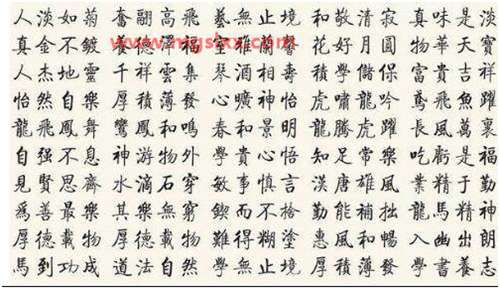 人淡如菊 奮翮高飛 藝無止境 和敬清寂 真味是淡
真金不鍍 養德 福 花好月圓 物華天寶
www.mgshxx.com
人杰地靈 千祥雲集 琴酒相壽 積學儲 富貴吉祥
怡然自樂 厚積薄發 心曠神怡 虎嘯龍吟 鳶飛魚躍
龍飛鳳舞 鸞鳳和鳴 春和景明 龍騰虎躍 長風萬裏
自强不息 神游物外 學貴心悟 知足常樂 吃虧是福
見賢思齊 水滴石穿 敏事慎言 漢唐雄風 業精于勤
爲善最樂 其樂無窮 鍥而不捨 勤能補拙 龍馬精神
厚德載物 厚德載物 難得糊塗 惠風和暢 入幽出朗
馬到功成 道法自然 學無止境 厚積薄發 學書養志